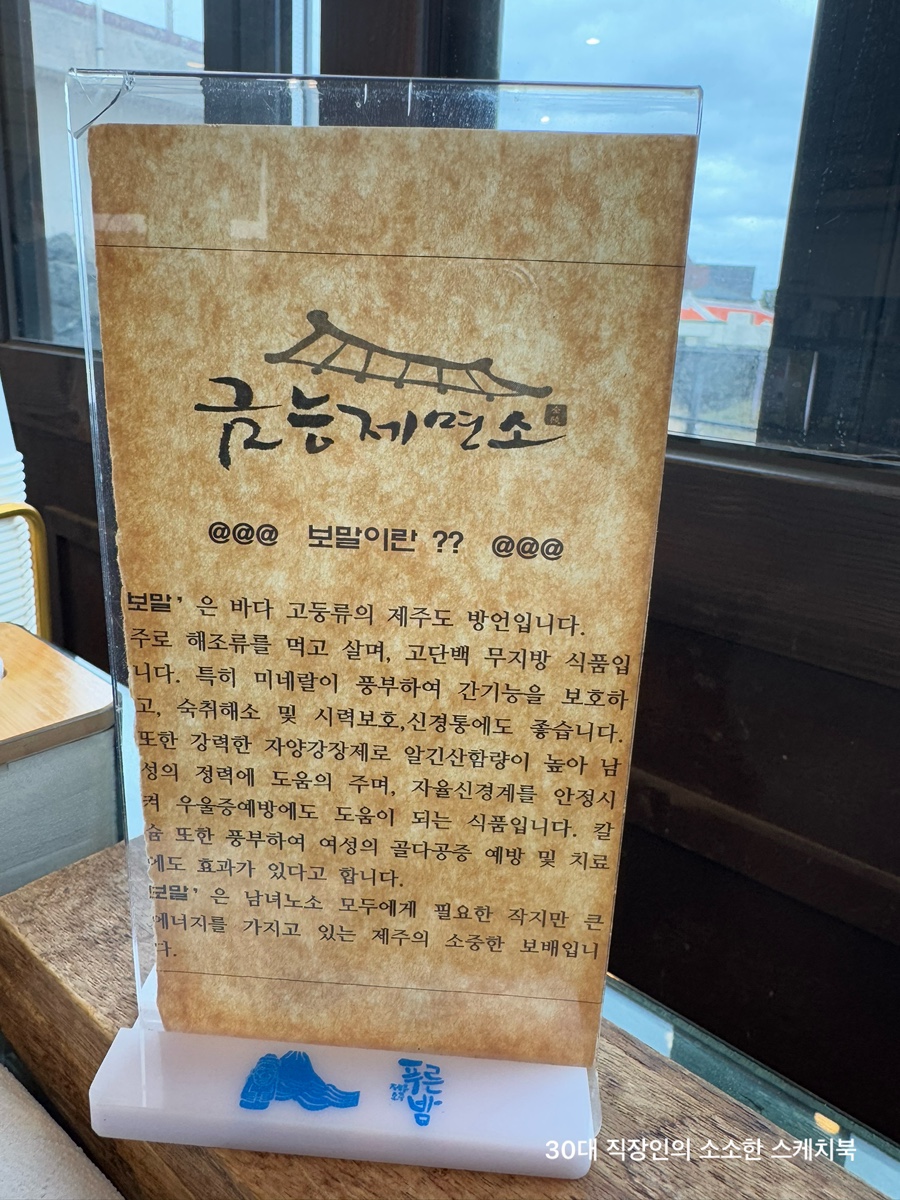 금능제면소
@@@ 보말이란 ?? @@@
보말’ 은 바다 고둥류의 제주도 방언입니다.
주로 해조류를 먹고 살며, 고단백 무지방 식품입
니다. 특히 미네랄이 풍부하여 간기능을 보호하
고, 숙취해소 및 시력보호,신경통에도 좋습니다.
또한 강력한 자양강장제로 알긴산함량이 높아 남
성의 정력에 도움의 주며, 자율신경계를 안정시
켜 우울증예방에도 도움이 되는 식품입니다. 칼
슘 또한 풍부하여 여성의 골다공증 예방 및 치료
에도 효과가 있다고 합니다.
보말’ 은 남녀노소 모두에게 필요한 작지만 큰
에너지를 가지고 있는 제주의 소중한 보배입니
다.
푸른
밤
30대 직장인의 소소한 스케치북